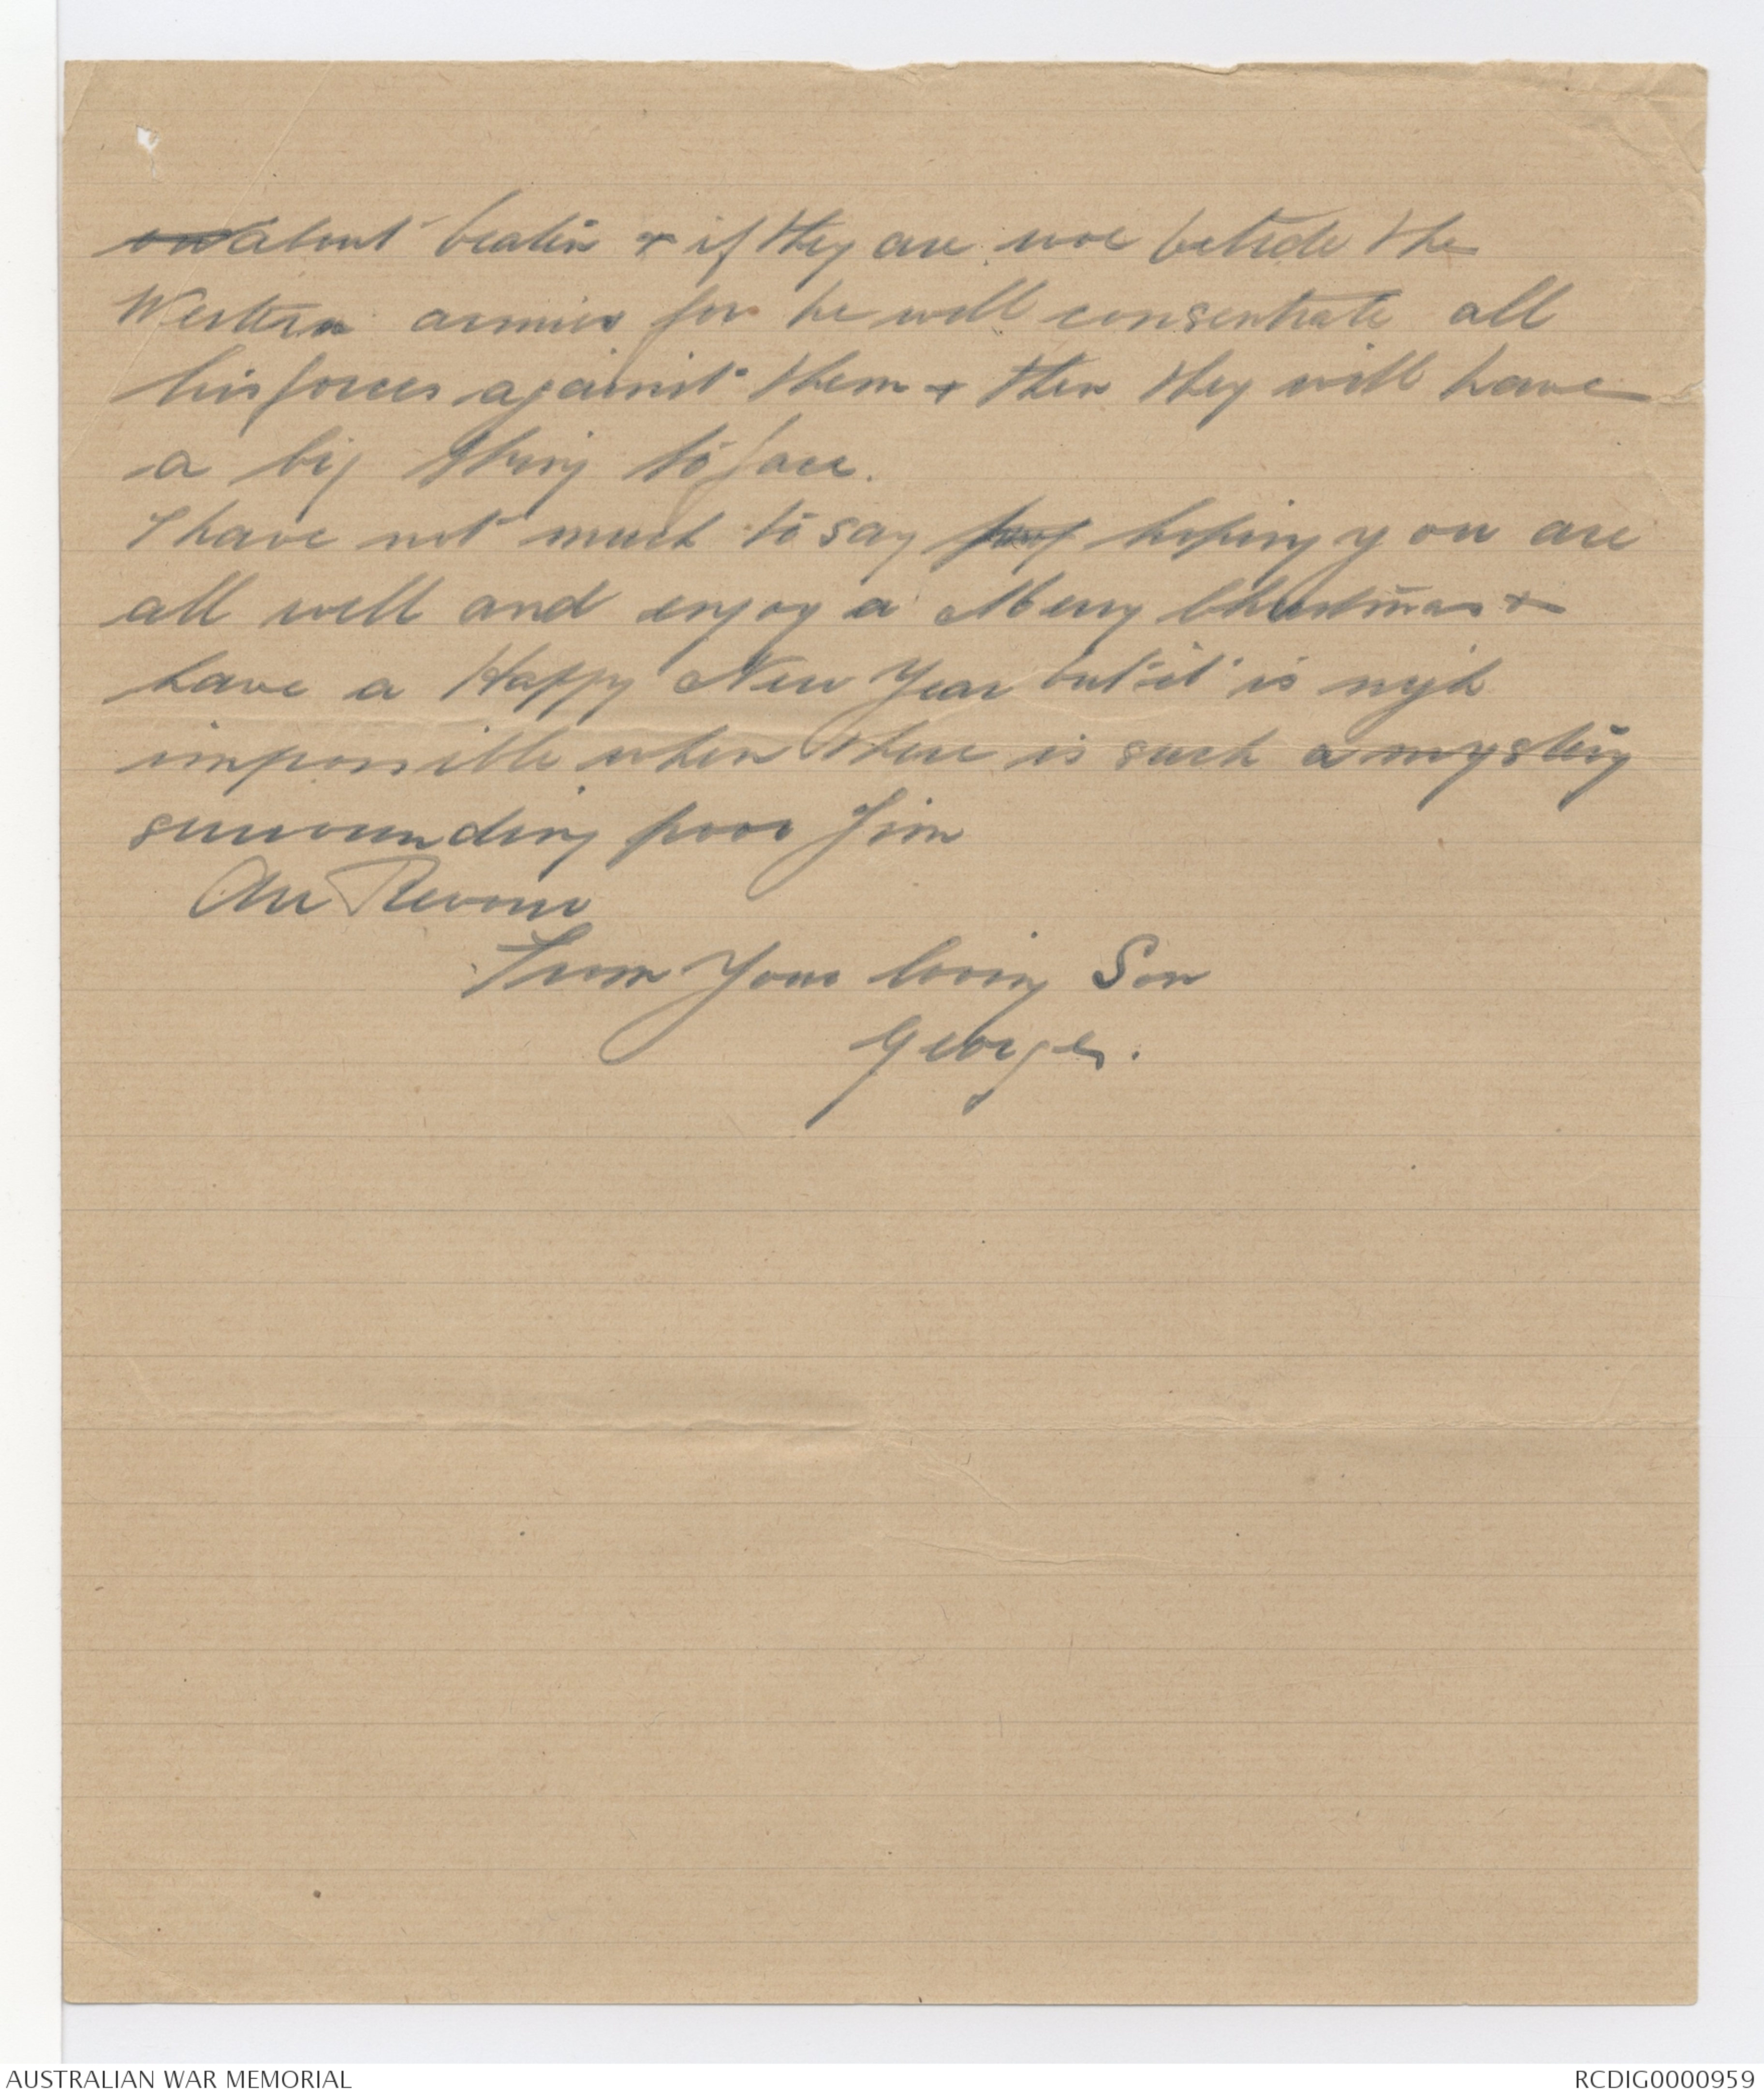 about beaten & if they are woe betide the
Western armies for he will consentrate all
his forces against them & then they will have
a big thing to face.
I have not much to say hoping you are
all well and enjoy a Merry Christmas &
have a Happy New Year but it is nigh
impossible when there is such a mystery
surrounding poor Jim
Au Revoir
From Your loving Son
George.
AUSTRALIAN WAR MEMORIAL
RCDIG0000959